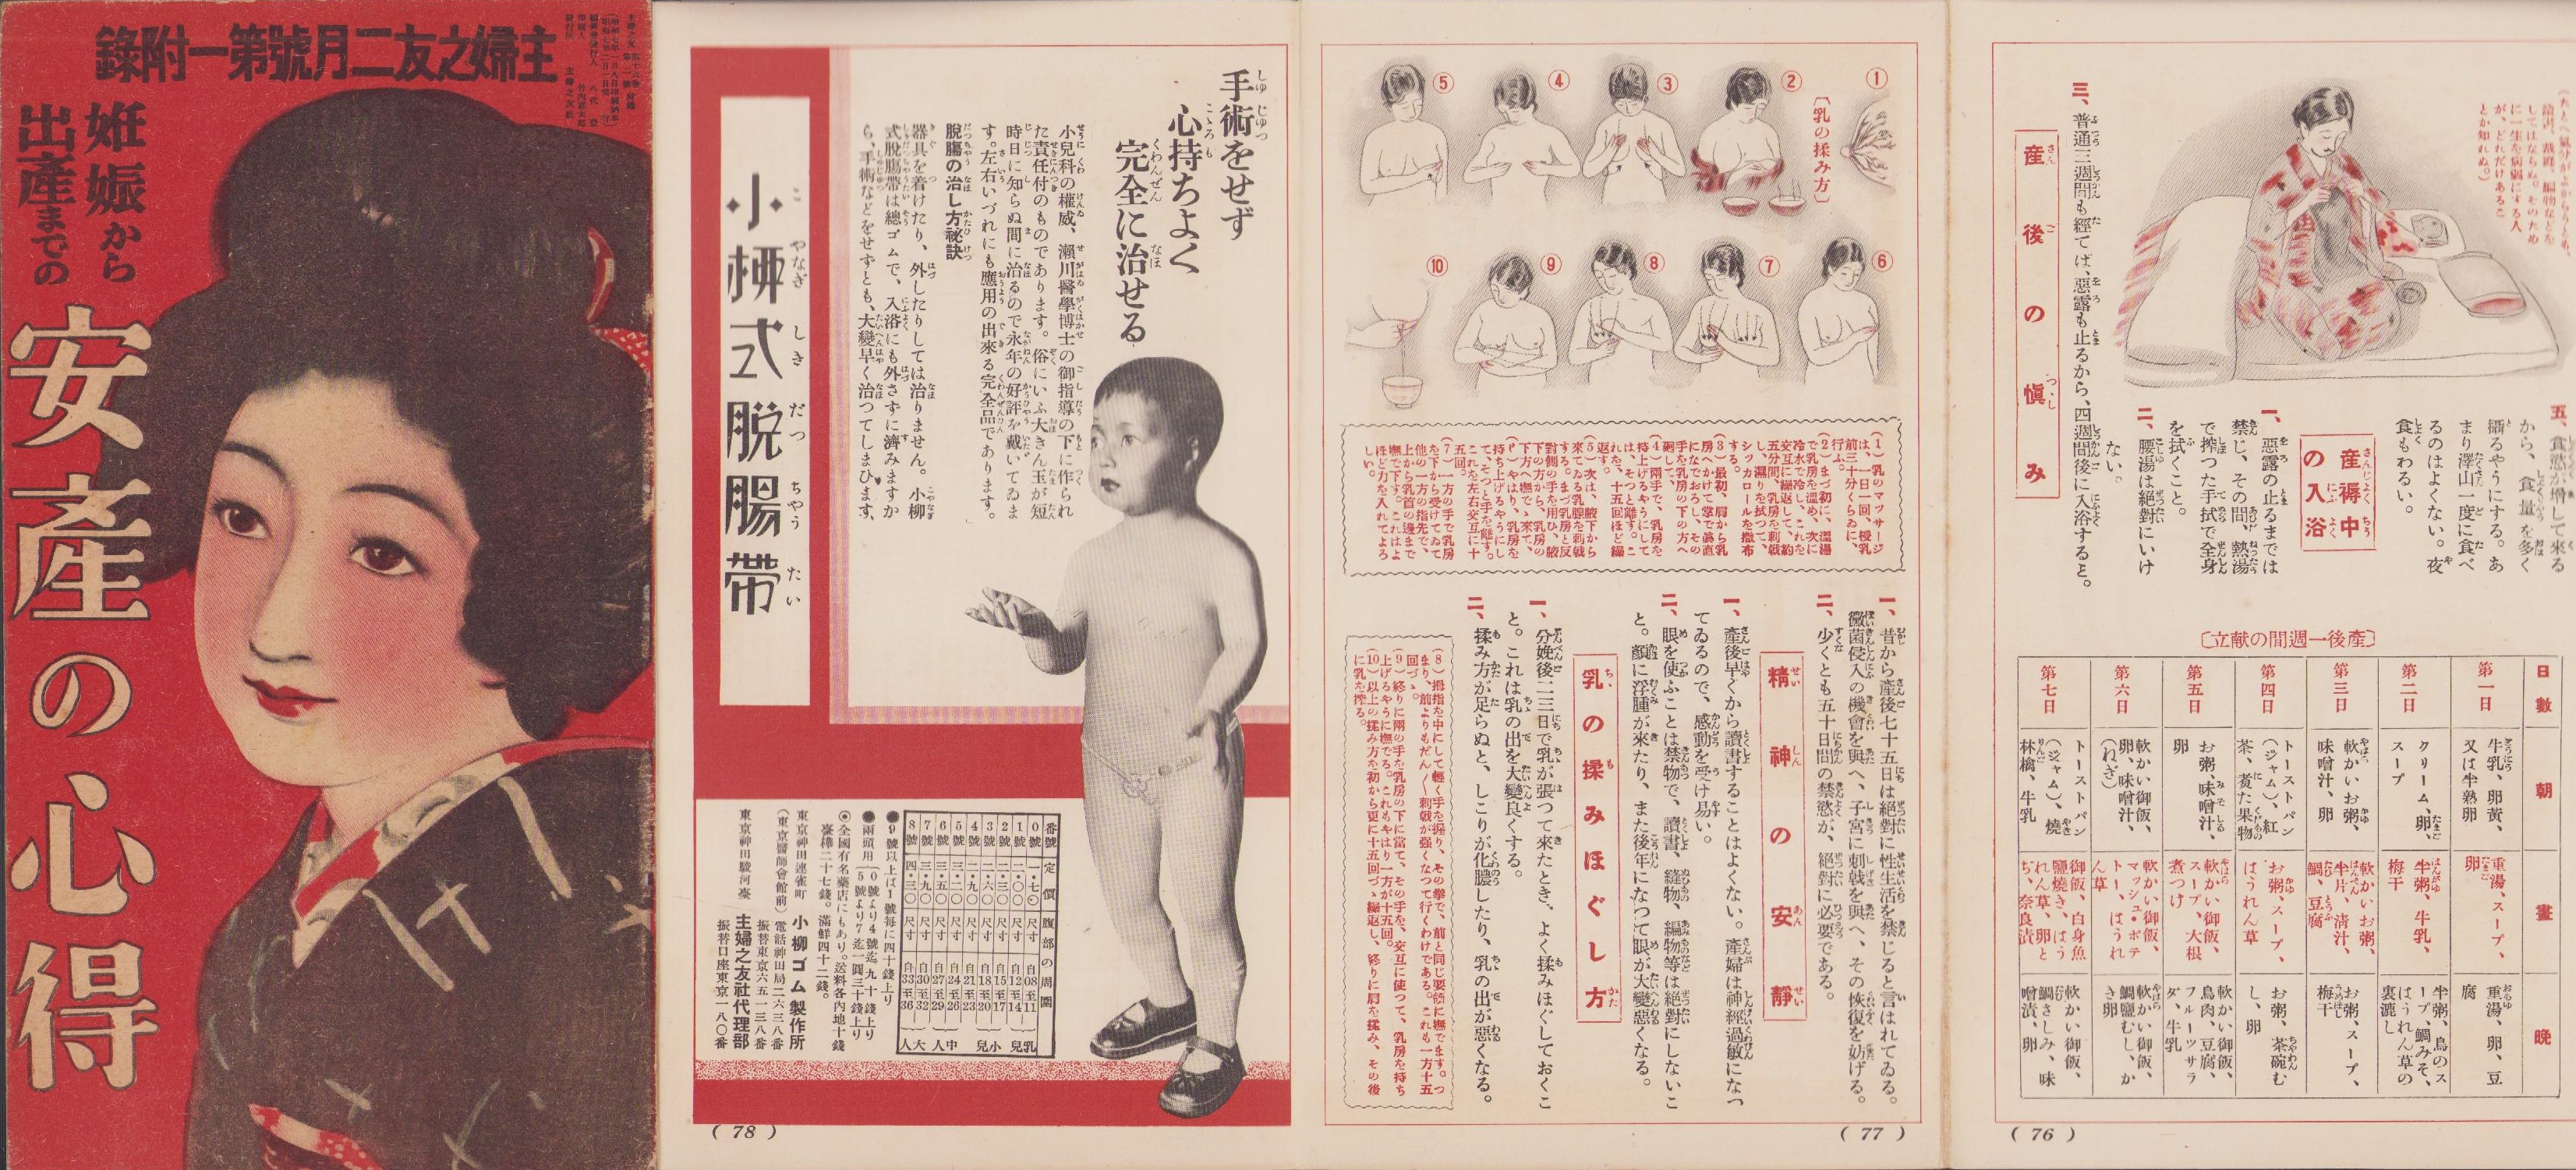 主婦之友二月號第一附錄
姙娠から
出產までの
安產の心得
手術をせず
心持ちよく
完全に治せる
小兒科の權威、瀨川醫學博士の御指導の下に作られ
た責任付のものであります。俗にいふ大きん玉が短
時日に知らぬ間に治るので永年の好評を戴いてゐま
す。左右いづれにも應用の出來る完全品であります。
脫膓の治し方祕訣
器具を着けたり、外したりしては治りません。小柳
式脫膓帶は總ゴムで、入浴にも外さずに濟みますか
ら、手術などをせずとも、大變早く治つてしまひます。
小柳式脫膓帶
番號 定價 腹部の周圍
0號 ・七〇 尺寸 自08至11
1號 二・〇〇 尺寸 自12至14
2號 二・三〇 尺寸 自15至17
3號 二・六〇 尺寸 自18至20
4號 二・九〇 尺寸 自21至23
5號 三・二〇 尺寸 自24至26
6號 三・五〇 尺寸 自27至29
7號 三・九〇 尺寸 自30至32
8號 四・三〇 尺寸 自33至36
乳兒 小兒 中人 大人
●9號以上は1號每に四十錢上り
●兩頭用 0號より4號迄 九十錢上り
5號より7迄一圓三十錢上り
◎全國有名藥店にもあり。送料各內地十錢
臺樺二十七錢。滿鮮四十二錢。
東京神田連雀町 小柳ゴム製作所
(東京醫師會館前) 電話神田局二六三八番
振替東京六五一三八番
東京神田駿河臺 主婦之友社代理部
振替口座東京一八〇番
( 78 )
① ② ③ ④ ⑤
〔乳の揉み方〕
⑥ ⑦ ⑧ ⑨ ⑩
(1)乳のマッサージ
は、一日一回、授乳
前三十分くらゐに、
行ふ。
(2)まづ初に、溫湯
で乳房を溫め、次に
冷水で冷し、これを
交互に繰返して、約
五分間、乳房を刺戟
し、濕りを拭つて、
シッカロールを撒布
する。
(3)最初、肩から乳
房へかけて掌で眞直
になでおろし、その
手を乳房の下の方へ
廻して、
(4)兩手で、乳房を
持上げるやうにして
は、そつと離す。こ
れを、十五回ほど繰
返す。
(5)次は、腋下から
來てゐる乳腺を刺戟
する。まづ乳房と反
對側の手を用ひ、腋
下の方から、乳房の
下方へ撫でゝ來て、
(6)やはり、乳房を
持ち上げるやうにし
て、そつと手を離す。
これを左右交互に十
五回。
(7)一方の手で乳房
を下から受けてゐて
他の一方の指先で、
上から乳首の邊まで
撫で下す。これはよ
ほど力を入れてよろ
しい。
一、昔から產後七十五日は絕對に性生活を禁じると言はれてゐる。
黴菌侵入の機會を與へ、子宮に刺戟を與へ、その恢復を妨げる。
二、少くとも五十日間の禁慾が、絕對に必要である。
精神の安靜
一、產後早くから讀書することはよくない。產婦は神經過敏になつ
てゐるので、感動を受け易い。
二、眼を使ふことは禁物で、讀書、縫物、編物等は絕對にしないこ
と。顏に浮腫が來たり、また後年になつて眼が大變惡くなる。
乳の揉みほぐし方
一、分娩後二三日で乳が張つて來たとき、よく揉みほぐしておくこ
と。これは乳の出を大變良くする。
二、揉み方が足らぬと、しこりが化膿したり、乳の出が惡くなる。
(8)拇指を中にして輕く手を握り、その拳で、前と同じ要領に撫でます。つ
まり、前よりもだん〱刺戟が强くなつて行くわけである。これも一方十五
回づゝ。
(9)終りに兩の手を乳房の下に當て、その手を、交互に使つて、乳房を持ち
上げるやうに撫でる。これもやはり一方が十五回。
(10)以上の揉み方を初から更に十五回づゝ繰返し、終りに肩を揉み、その後
に乳を搾る。
( 77 )
讀書、裁縫、編物などを
してはならぬ。そのため
に一生を病弱にする人
が、どれだけあるこ
とか知れぬ。)
五、食慾が增して來る
から、食量を多く
攝るやうにする。あ
まり澤山一度に食べ
るのはよくない。夜
食もわるい。
產褥中
の入浴
一、惡露の止るまでは
禁じ、その間、熱湯
で搾つた手拭で全身
を拭くこと。
二、腰湯は絕對にいけ
ない。
三、普通三週間も經てば、惡露も止るから、四週間後に入浴すると。
產後の愼み
〔產後一週間の献立〕
日數 朝 晝 晚
第一日 牛乳、卵黃、又は半熟卵 重湯、スープ、卵 重湯、卵、豆腐
第二日 クリーム、卵、スープ 半粥、牛乳、梅干 半粥、鳥のスープ、鯛みそ、ほうれん草の裏漉し
第三日 軟かいお粥、味噌汁、卵 軟かいお粥、半片、淸汁、鯛、豆腐 お粥、スープ、梅干
第四日 トーストパン(ジャム)、紅茶、煮た果物 お粥、スープ、ほうれん草 お粥、茶碗むし、卵
第五日 お粥、味噌汁、卵 軟かい御飯、スープ、大根煮つけ 軟かい御飯、鳥肉、豆腐、フルーツサラダ、牛乳
第六日 軟かい御飯、卵、味噌汁、(ねぎ) 軟かい御飯、マッシュ・ポテトー、ほうれん草 軟かい御飯、鯛鹽むし、かき卵
第七日 トーストパン(ジャム)、燒林檎、牛乳 御飯、白身魚鹽燒き、ほうれん草、卵とぢ、奈良漬 軟かい御飯、鯛さしみ、味噌漬、卵
( 76 )